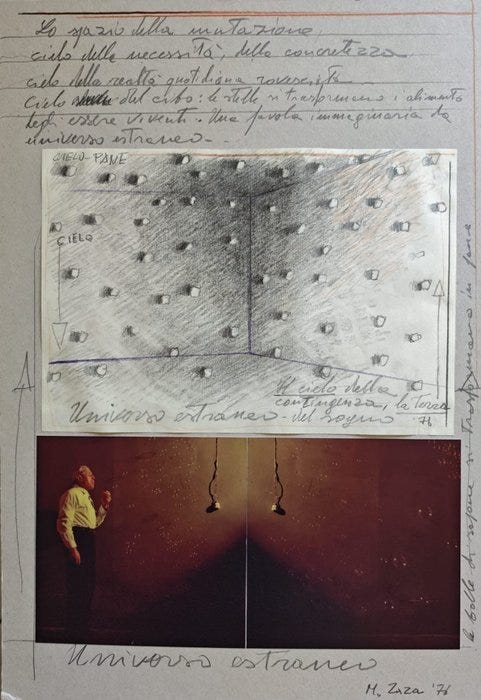 Lo spazio della mutazione,
cielo della necessità, della concretezza
cielo della realtà quotidiana rovesciata
Cielo del cibo: le stelle si trasformano i alimento
degli essere viventi. Una favola immaginaria da
universo estraneo.
CIELO-PANE
CIELO
Il cielo della
contingenza, la terra
Universo estraneo - del sogno
76
le bolle di sapone si trasformano in pane
Universo estraneo
M. Zaza '76